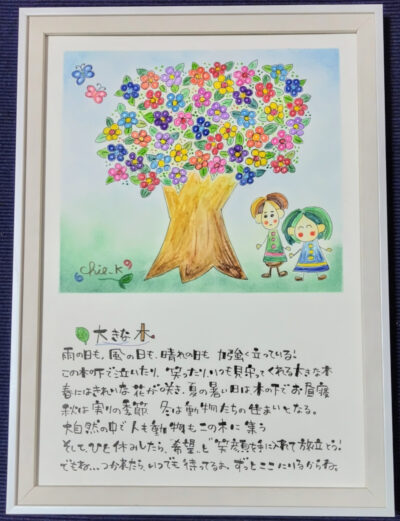 chie.K
大きな木
雨の日も、風の日も、晴れの日も 力強く立っている!
この木の下で泣いたり、笑ったり、いつも見守ってくれる大きな木
春にはきれいな花が咲き、夏の暑い日は、木の下でお昼寝
秋は実りの季節 冬は動物たちの住まいとなる。
大自然の中で人も動物もこの木に集う
そして、ひと休みしたら、"希望"と"笑顔"を手に入れて旅立とう!
でもね...つかれたら、いつでも待ってるよ。ずっとここにいるからね。